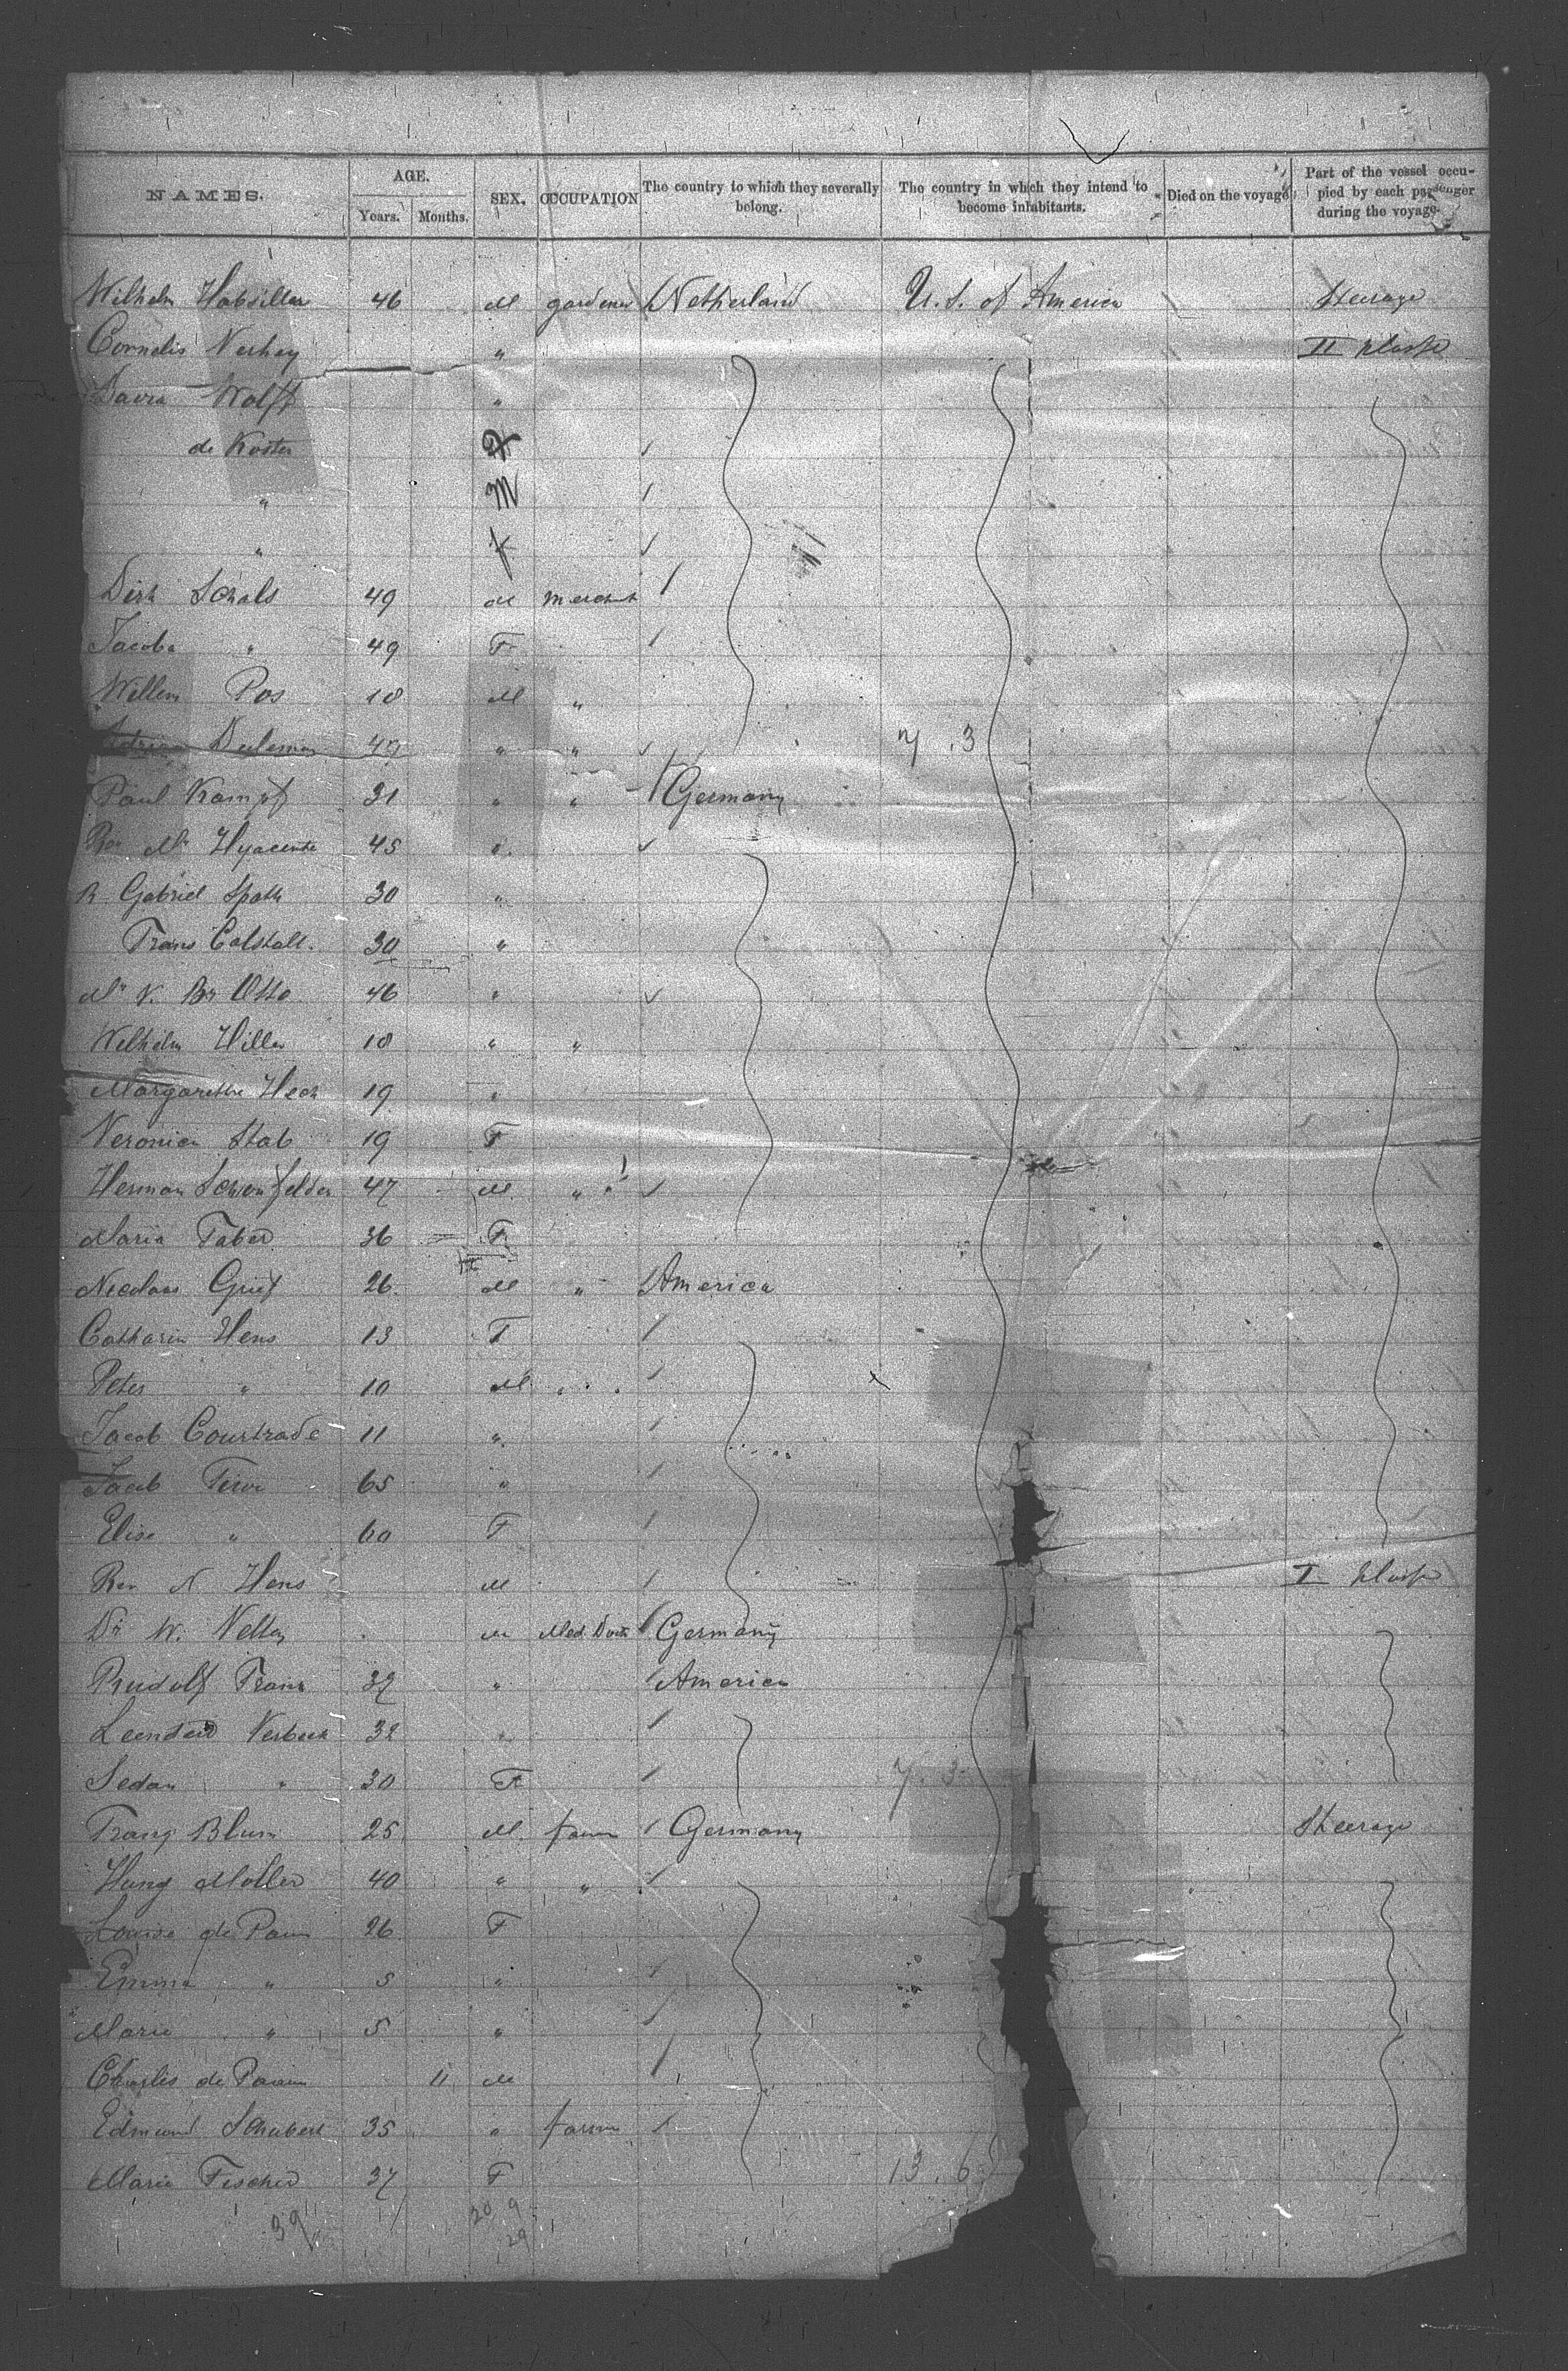 NAMES. AGE. Years. Months. SEX. OCCUPATION The country to which they severally belong. The country in which they intend to become inhabitants. Died on the voyage Part of the vessel occupied by each passenger during the voyage.
Wilhelm 46 M gardener Netherland U. S. of America Steerage
Cornelis Verhey " II klasse
Wolff "
de Koster F
" M
" f
Dirk Schals 49 M merchant
Jacoba " 49 F
Willem Pos 18 M "
42 " "
Paul Kampf 31 " " Germany
7 . 3
Mr Hyacenthe 45 "
R Gabriel Spath 30 "
Frans 30 "
Mr V. Br Otto 46 "
Wilhelm Hiller 18 " "
Margarethe Heck 19 "
Veronica Stab 19 F
Herman Schoenfelder 47 M "
Maria Faber 36 F
Nicolaas Grief 26 M " America
Catharin Hens 13 F
Peter " 10 M
Jacob Courtrade 11 "
Jacob 65 "
Elise " 60 F
Rev N Hens M I klasse
Dr W. M Med. Doctr Germany
Rudolf Franz 32 " America
Leendert Verbeek 32 "
" 30 F
7. 3
Franz Blum 25 M farm Germany Steerage
Moller 40 " "
Louise de 26 F
Emma " 5 "
Marie " 5 "
Charles de 11 M
Edmund Schubert 35 " farm
Marie Fischer 37 F 13 . 6
39 20 9
29